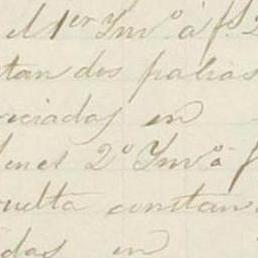 el 1er Ynvo á f. 2
tan dos palias
reciadas en
en el 2o Ynvo á f
vuelta constan
adas en